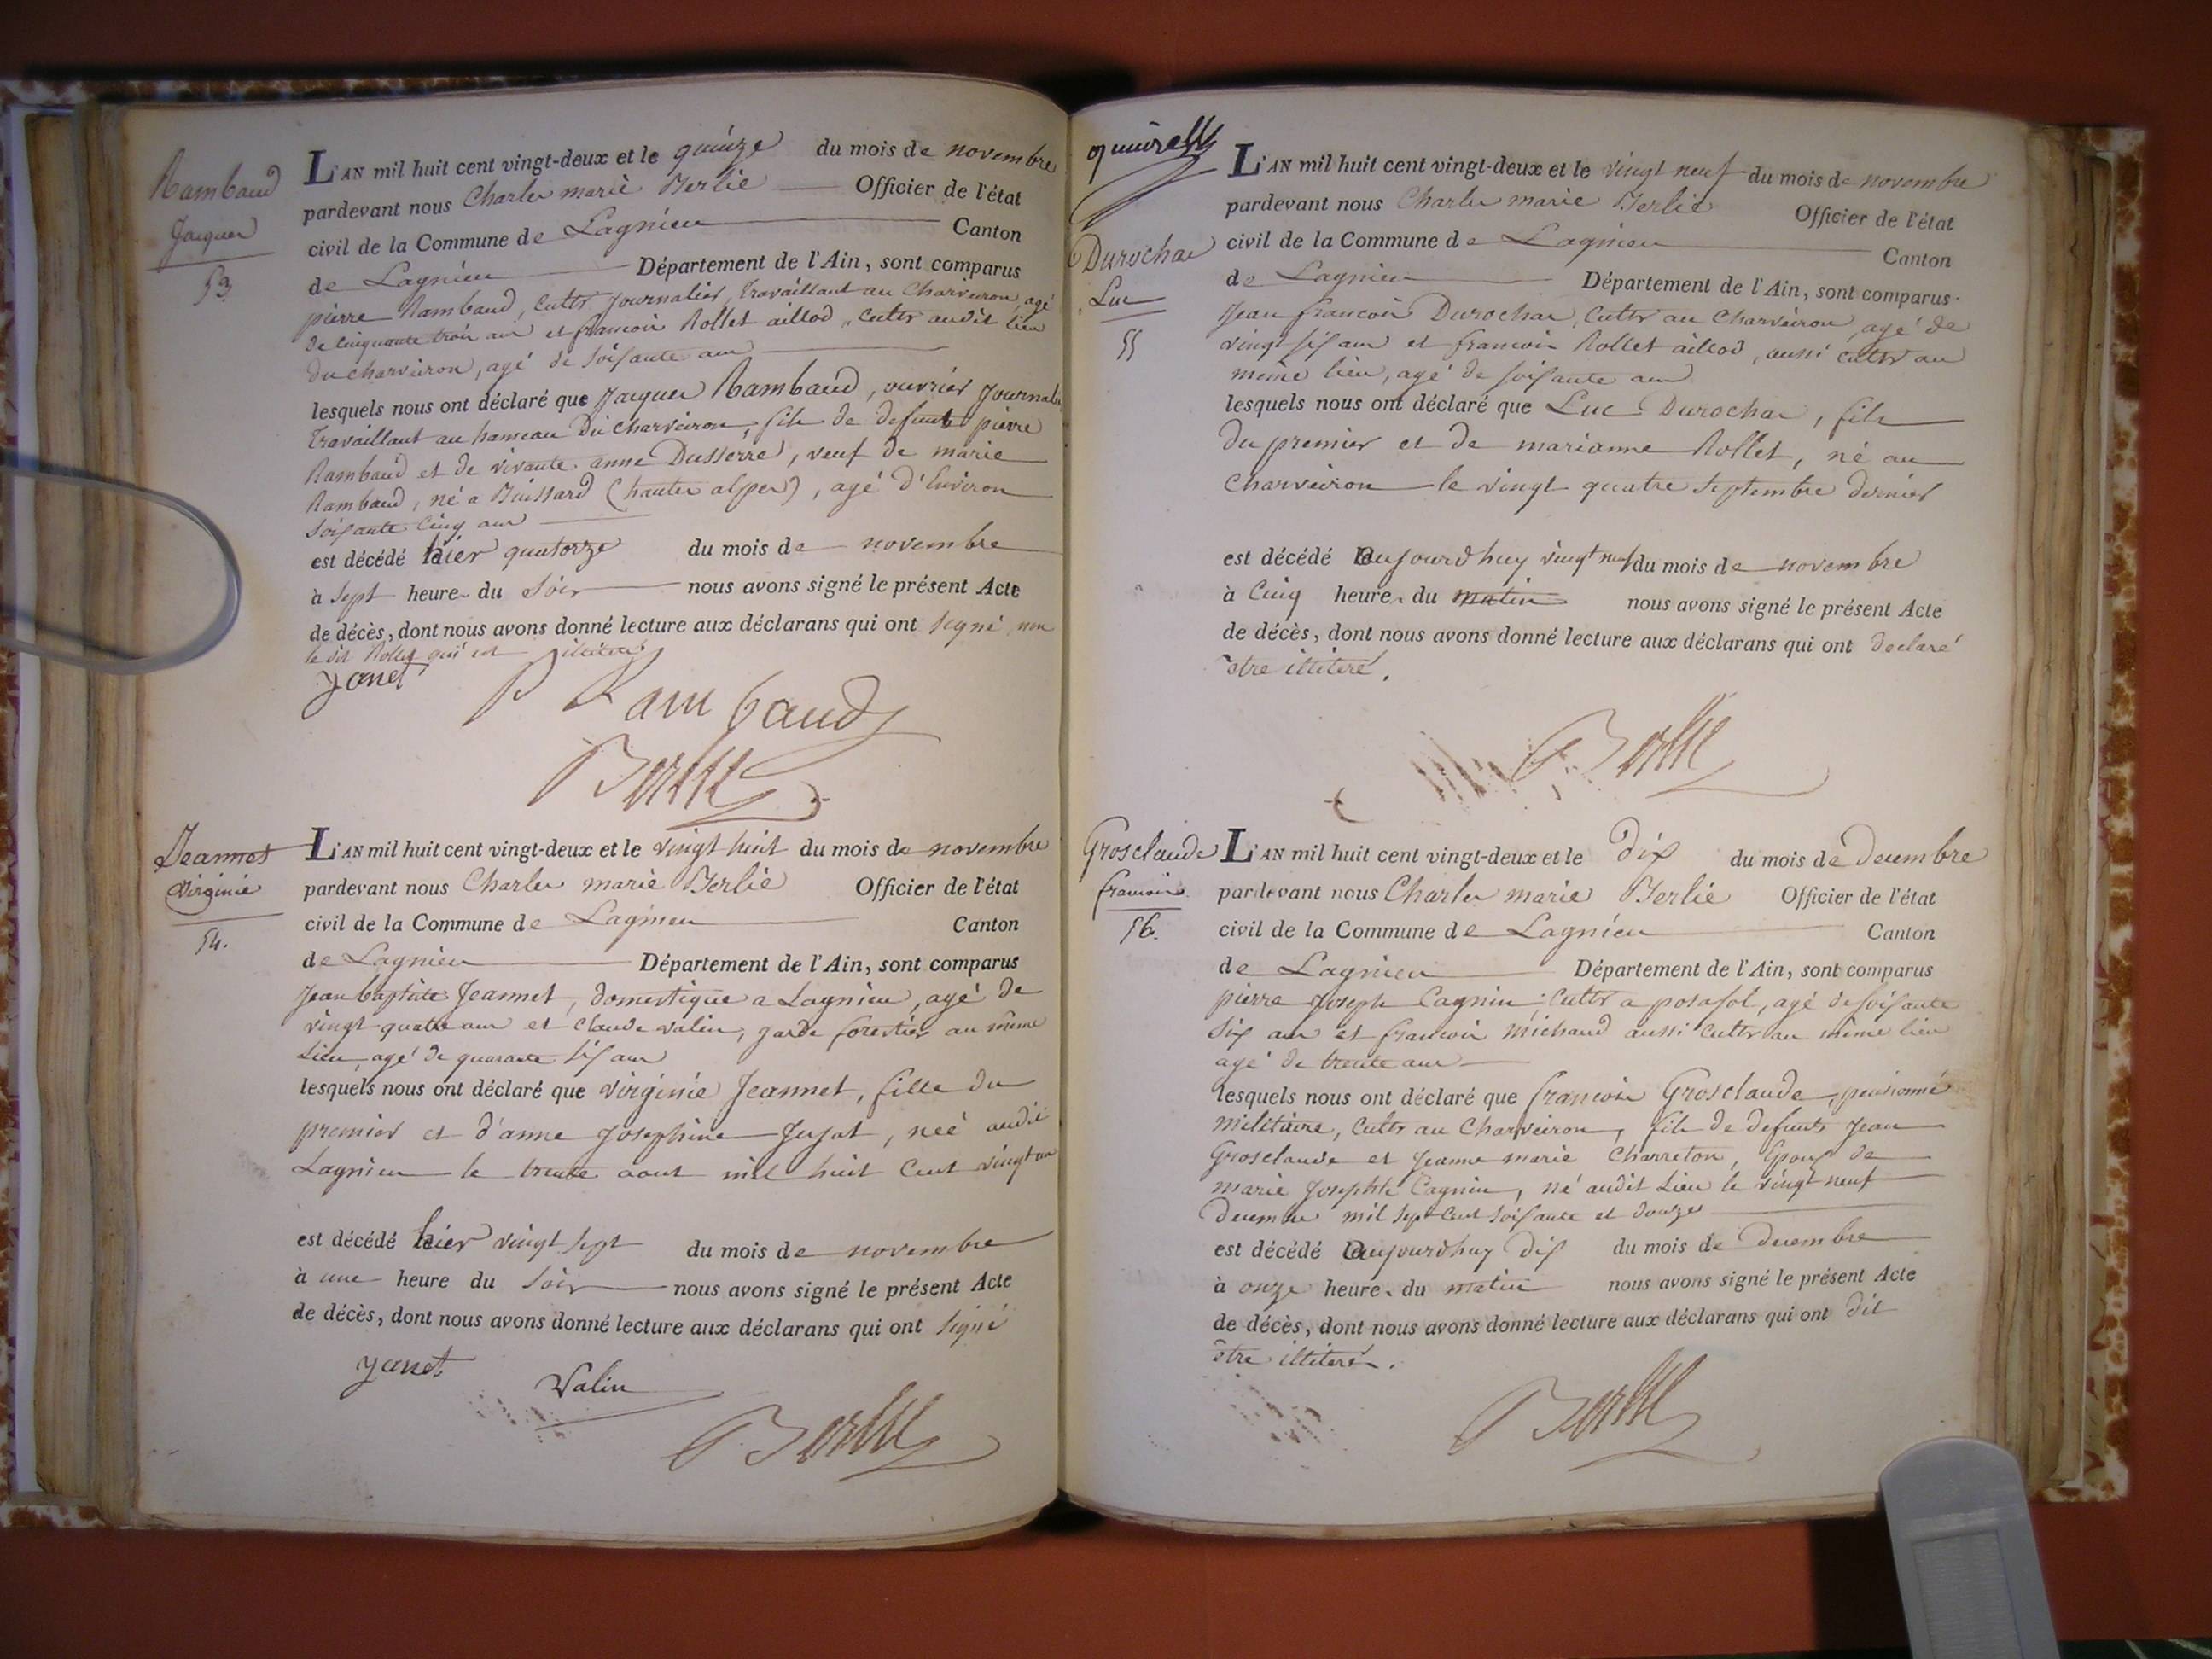 Rambaud
Jacques
53.
L'AN mil huit cent vingt-deux et le quinze du mois de novembre
pardevant nous Charles marie Berlié Officier de l'état
civil de la Commune de Lagnieu Canton
de Lagnieu Département de l'Ain, sont comparus
pierre Rambaud, cultr journalier, travaillant au Charveiron, agé
de cinquante trois ans et francois Rollet aillod, cultr audit lieu
du charveiron, agé de soixante ans
lesquels nous ont déclaré que Jacques Rambaud, ouvrier journalier
travaillant au hameau du charveiron, fils de defunt pierre
Rambaud et de vivante anne Dusserre, veuf de marie
Rambaud, né a Buissard (hautes alpes), agé d'environ
soixante cinq ans
est décédé hier quatorze du mois de novembre
à sept heures du soir nous avons signé le présent Acte
de décès, dont nous avons donné lecture aux déclarans qui ont signé, non
le dit Rollet qui est illitéré
P Rambaud
Berlié
Jeannet
Virginie
54.
L'AN mil huit cent vingt-deux et le vingt huit du mois de novembre
pardevant nous Charles marie Berlié Officier de l'état
civil de la Commune de Lagnieu Canton
de Lagnieu Département de l'Ain, sont comparus
Jean baptiste Jeannet, domestique a Lagnieu, agé de
vingt quatre ans et claude valin, garde forestier au même
Lieu, agé de quarante six ans
lesquels nous ont déclaré que virginie Jeannet, fille du
premier et d'anne Josephine, neé audit
Lagnieu le trente aout mil huit cent vingt un
est décédé hier vingt sept du mois de novembre
à une heure du soir nous avons signé le présent Acte
de décès, dont nous avons donné lecture aux déclarans qui ont signé
janet Valin
Berlié
Durochas
Luc
55
L'AN mil huit cent vingt-deux et le vingt neuf du mois de novembre
pardevant nous Charles marie Berlié Officier de l'état
civil de la Commune de Lagnieu Canton
de Lagnieu Département de l'Ain, sont comparus
Jean francois Durochas, cultr au Charveiron, agé de
vingt six ans et francois Rollet aillod, aussi cultr au
même lieu, agé de soixante ans
lesquels nous ont déclaré que Luc Durochas, fils
du premier et de marianne Rollet, né au
Charveiron le vingt quatre septembre dernier
est décédé aujourdhuy vingt neuf du mois de novembre
à cinq heures du matin nous avons signé le présent Acte
de décès, dont nous avons donné lecture aux déclarans qui ont declaré
être illiteré.
Berlié
Grosclaude
francois
56.
L'AN mil huit cent vingt-deux et le dix du mois de Decembre
pardevant nous Charles marie Berlié Officier de l'état
civil de la Commune de Lagnieu Canton
de Lagnieu Département de l'Ain, sont comparus
pierre Joseph Cagnin, cultr a posafol, agé de soixante
six ans et francois michaud aussi cultr au même lieu
agé de trente ans
lesquels nous ont déclaré que francois Grosclaude, pensionné
militaire, cultr au Charveiron, fils de defunts Jean
Grosclaude et Jeanne marie Charreton, Epoux de
marie Josephte Cagnin, né audit Lieu le vingt neuf
Decembre mil sept cent soixante et douze
est décédé aujourdhuy dix du mois de Decembre
à onze heures du matin nous avons signé le présent Acte
de décès, dont nous avons donné lecture aux déclarans qui ont dit
être illiterés.
Berlié